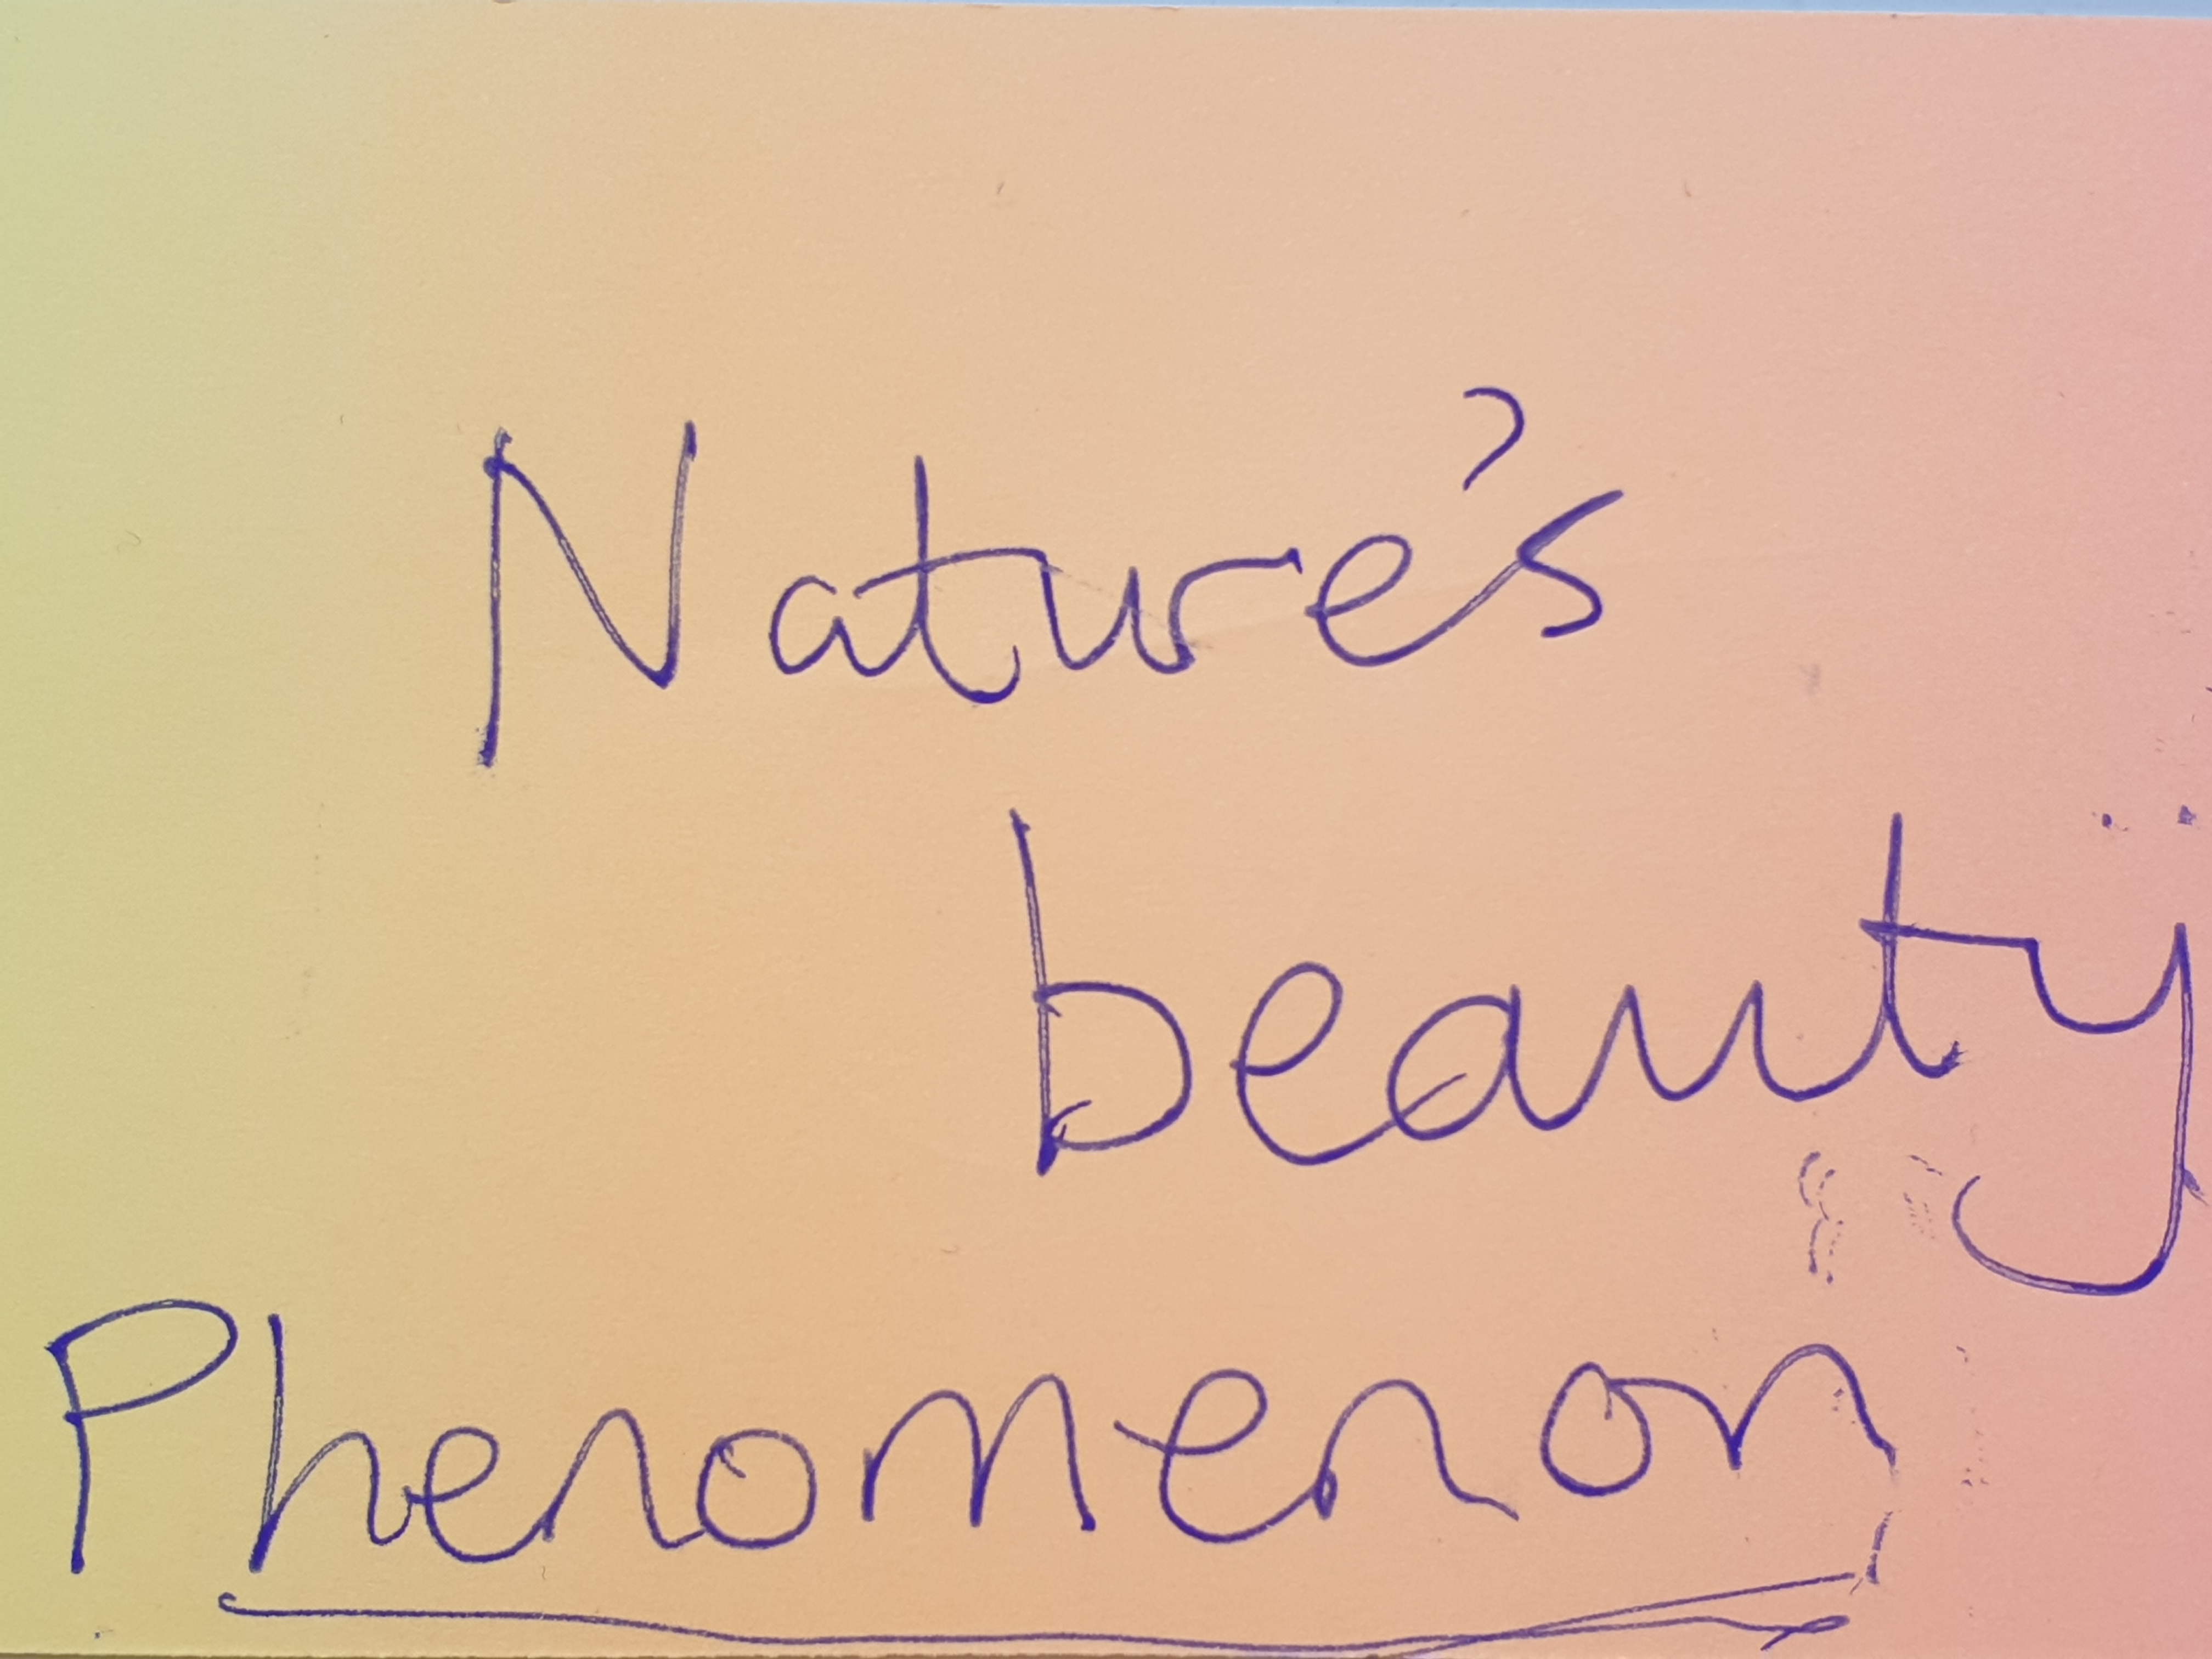 Nature's
beauty
Phenomenon